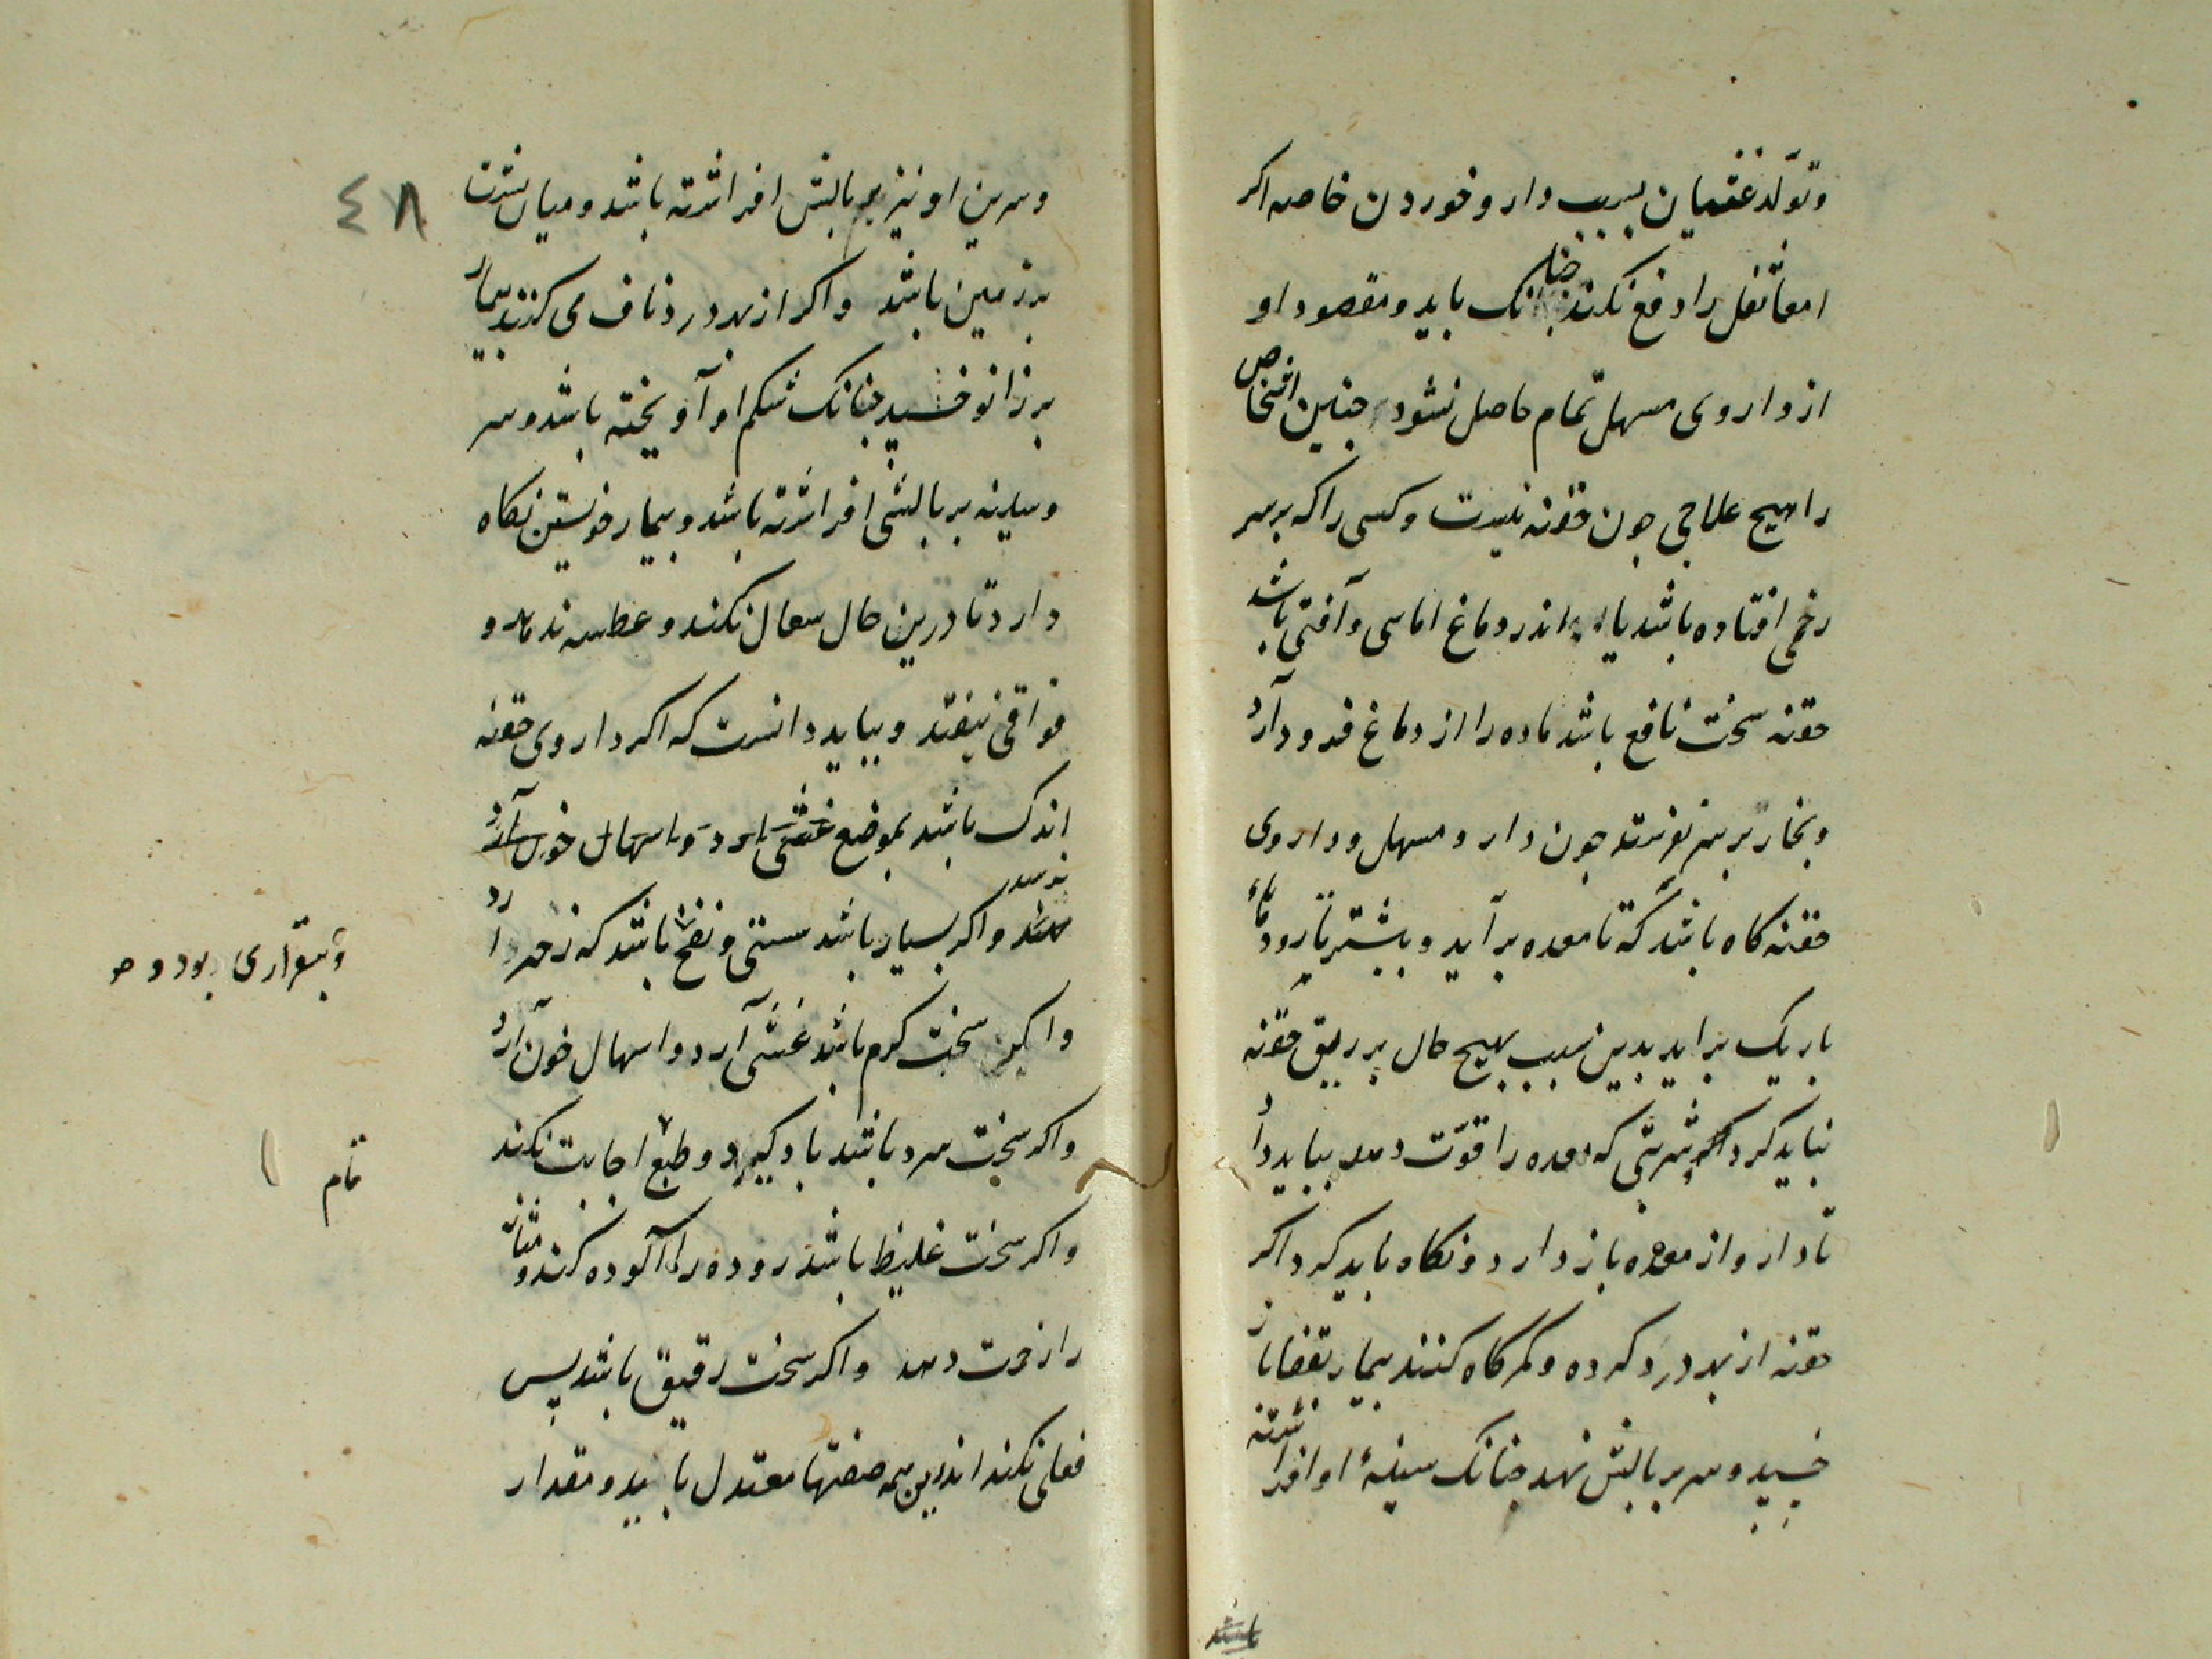 و تولّد غثیان بسبب دارو خوردن خاصه اکر
امعا ثفل را دفع نکند جنانک باید و مقصود او
از داروی مسهل تمام حاصل نشود جنین اشخاص
را هیچ علاجی جون حقنه نیست و کسی را که بر سر
زخمی افتاده باشد یا اندر دماغ اماسی و آفتی باشد
حقنه سخت نافع باشد ماده را از دماغ فرود آرد
و بخار بر سر نفرستد جون دارو مسهل و داروی
حقنه کاه باشد که تا معده برآید و بیشتر تا رودهاء
باریک براید بدین سبب بهیج حال بر ریق حقنه
نباید کرد شربتی که معده را قوّت دهد بباید داد
تا دارو از معده باز دارد و نکاه باید کرد اکر
حقنه از بهر درد کرده و کمرکاه کنند بیمار بقفا باز
خسبد و سر بر بالش نهد جنانک سینهٔ او افراشته
باشد
٤٨
و سرین او نیز بر بالش افراشته باشد و میان پشت
بر زمین باشد و اکر از بهر درد ناف می کنند بیمار
بر زانو خسبد جنانک شکم او آویخته باشد و سر
و سینه بر بالشی افراشته باشد و بیمار خویشتن نکاه
دارد تا درین حال سعال نکند و عطسه ندهد و
فواقی نیفتد و بباید دانست که اکر داروی حقنه
اندک باشد بموضع غشی آرد و اسهال خون آرد
نرسد و اکر بسیار باشد سستی و نفخ باشد که زحیر آرد
و بیقراری بود و
و اکر سخت کرم باشد غشی آرد و اسهال خون آرد
و اکر سخت سرد باشد باد کیرد و طبع اجابت نکند
تمام
و اکر سخت غلیظ باشد روده را آلوده کند و مثانه
را زحمت دهد و اکر سخت رقیق باشد پس
فعلی نکند اندرین همه صفتها معتدل باید و مقدار